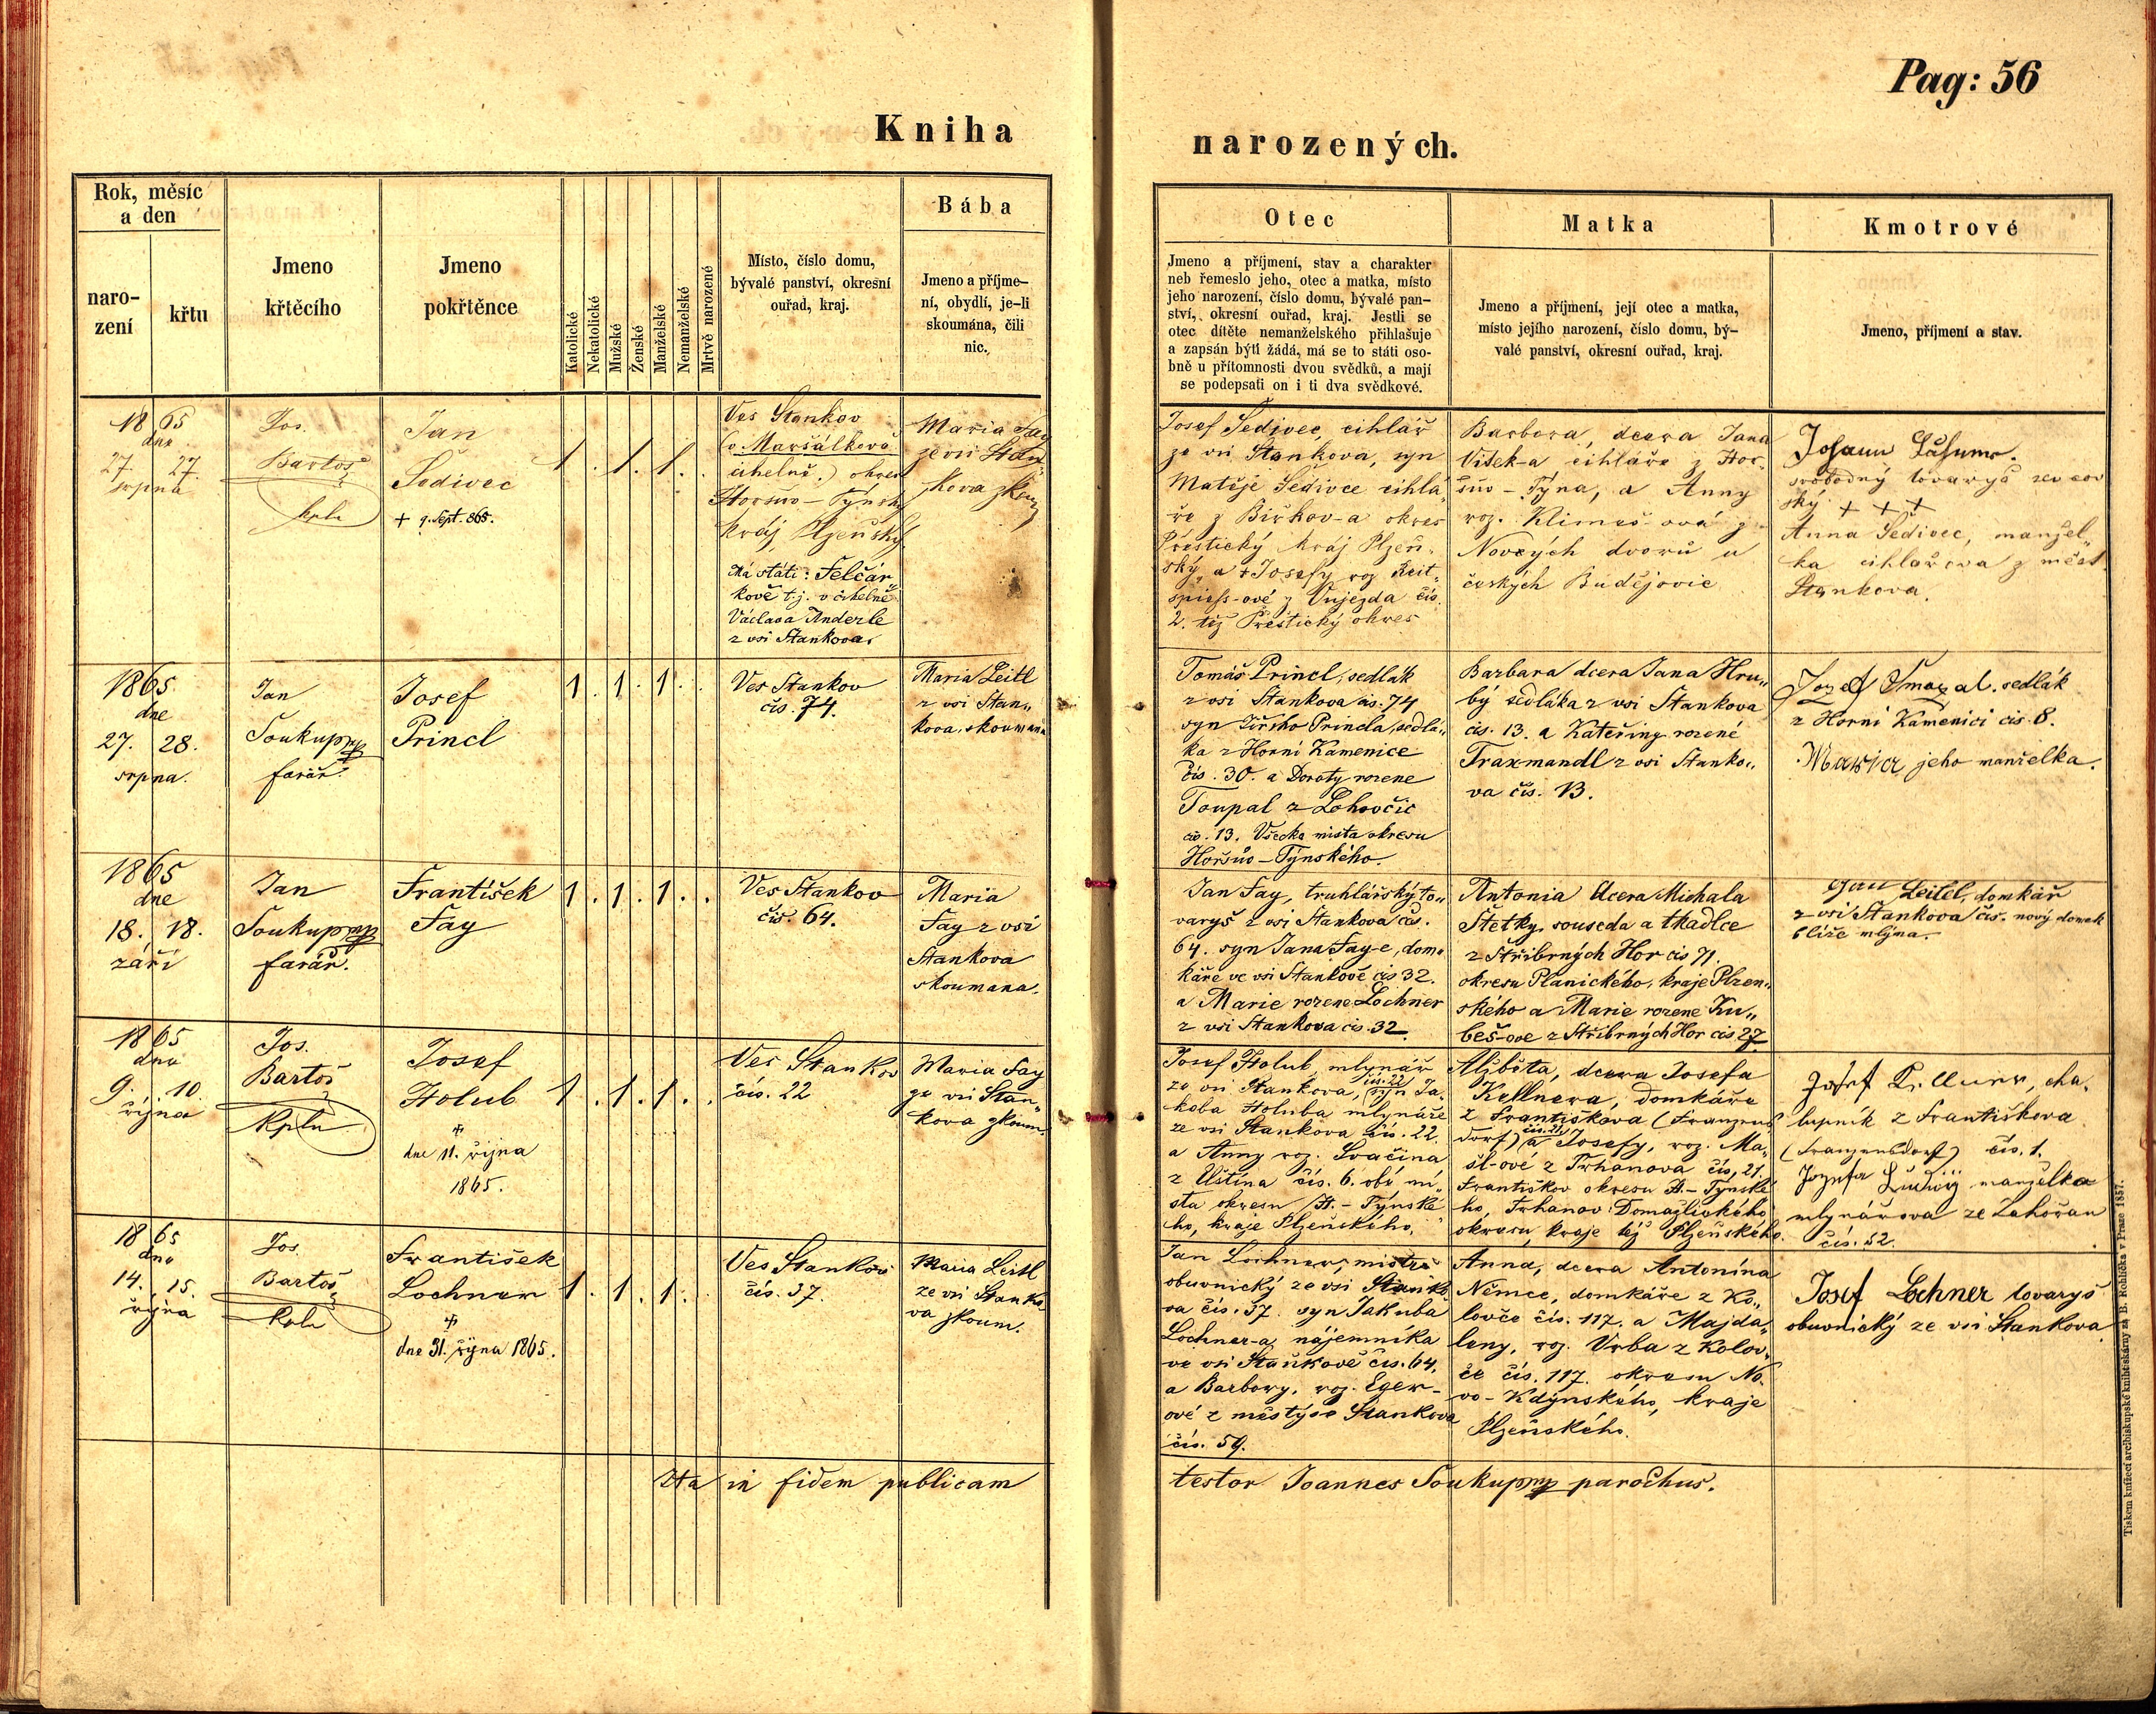 Pag: 56
Kniha
narozených.
Rok, měsíc
a den
naro-
zení
křtu
Jmeno
křtěcího
Jmeno
pokřtěnce
Katolické
Nekatolické
Mužské
Ženské
Manželské
Nemanželské
Mrtvě narozené
Místo, číslo domu,
bývalé panství, okresní
ouřad, kraj.
Bába
Jmeno a příjme-
ní, obydlí, je-li
skoumána, čili
nic.
Otec
Jmeno a příjmení, stav a charakter
neb řemeslo jeho, otec a matka, místo
jeho narození, číslo domu, bývalé pan-
ství, okresní ouřad, kraj. Jestli se
otec dítěte nemanželského přihlašuje
a zapsán býti žádá, má se to státi oso-
bně u přítomnosti dvou svědků, a mají
se podepsati on i ti dva svědkové.
Matka
Jmeno a příjmení, její otec a matka,
místo jejího narození, číslo domu, bý-
valé panství, okresní ouřad, kraj.
Kmotrové
Jmeno, příjmení a stav.
1865
dne
27. 27.
srpna
Jos.
Bartoš
kpln
Jan
Šedivec
+ 9. Sept. 865.
1. 1. 1.
Ves Stankov
(v Maršálkově
cihelně.) okres
Horšuo-Týnský
kraj Plzeňský
Má státi: Felčár„
kově t.j. v cihelně
Václava Anderle
z vsi Stankova.
Maria Fay
ze vsi Stan„
kova zkoum
Josef Šedivec, cihlář
ze vsi Stankova, syn
Matěje Šedivce cihlá„
ře z Biřkov-a okres
Přestický kraj Plzeň„
ský, a Josefy roz. Reit„
spiess-ové z Vujezda čís.
2. též Přestický okres
Barbora, dcera Jana
Vitek-a cihláře z Hor„
šuo-Týna, a Anny
roz. Klimeš-ová z
Nových dvorů u
českých Budějovic
svobodný tovaryš
ský + + +
Anna Šedivec, manžel„
ka cihlářova z měst.
Stankova.
1865
dne
27. 28.
srpna.
Jan
Soukup mp
farář.
Josef
Princl
1. 1. 1. .
Ves Stankov
čís. 74.
Maria Leitl
z vsi Stan„
kova, skoumana
Tomáš Princl, sedlák
z vsi Stankova čís. 74
syn Jiřího Princla, sedlá„
ka z Horní Kamenice
čís. 30. a Doroty rozene
Toupal z Lohovčic
čís. 13. Všecka mista okresu
Horšuo-Týnského.
Barbara dcera Jana Hru„
bý sedláka z vsi Stankova
čís. 13. a Kateřiny rozené
Traxmandl z vsi Stanko„
va čís. 13.
Jozef Smazal, sedlák
z Horní Kamenici cis 8.
Maria jeho manželka.
1865
dne
18. 18.
září
Jan
Soukup mp
farář.
František
Fay
1. 1. 1. .
Ves Stankov
čís. 64.
Maria
Fay z vsi
Stankova
skoumana.
Jan Fay, truhlářský to„
varyš z vsi Stankova čís.
64. syn Jana Fay-e, dom„
káře ve vsi Stankově cis 32.
a Marie rozene Lochner
z vsi Stankova cis. 32.
Antonia dcera Michala
Štetky, souseda a tkadlce
z Stříbrných Hor cis 71.
okresu Planického, kraje Plzen„
ského a Marie rozene Ku„
beš-ove z Stříbrných Hor cis 27
Jan Leitl, domkář
z vsi Stankova čís. nový domek
blíže mlýna.
1865
dne
9. 10.
října
Jos.
Bartoš
Kpln
Josef
Holub
dne 11. října
1865.
1. 1. 1. .
Ves Stankov
čís. 22
Maria Fay
ze vsi Stan„
kova zkoum.
Josef Holub, mlynář
ze vsi Stankova, čís. 22 syn Ja„
koba Holuba mlynáře
ze vsi Stankova čís. 22.
a Anny roz. Svačina
z Uštína čís. 6. obě mí„
sta okresu H.-Týnské„
ho, kraje Plzeňského.
Alžběta, dcera Josefa
Kellnera, domkáře
z Františkova (Franzens„
dorf) čís. 21. a Josefy, roz. Ma„
šl-ové z Trhanova čís. 21.
Františkov okresu H.-Týnské„
ho, Trhanov Domažlického
okresu, kraje též Plzeňského.
Josef Kellner, cha„
lupník z Františkova
(Franzensdorf) čís. 1.
Jozefa Ludwig manželka
mlynářova ze Zahořan
čís. 52.
1865
dne
14. 15.
října
Jos.
Bartoš
Kpln
František
Lochner
dne 31. října 1865.
1. 1. 1.
Ves Stankov
čís. 37.
Maria Leitl
ze vsi Stanko
va zkoum.
Jan Lochner, mistr
obuvnický ze vsi Stanko„
va čís. 37. syn Jakuba
Lochner-a nájemníka
ve vsi Staňkově čís. 64.
a Barbory, roz. Eger-
ové z městýse Stankova
čís. 59.
Anna, dcera Antonína
Němce, domkáře z Ko„
lovče čís. 117. a Majda„
leny, roz. Vrba z Kolov„
če čís. 117. okresu No„
vo-Kdýnského, kraje
Plzeňského.
Josef Lochner tovaryš
obuvnický ze vsi Stankova
Ita in fidem publicam
testor Joannes Soukup mp parochus.
Tiskem knížecí arcibiskupské knihtiskárny za B. Rohlíčka v Praze 1857.